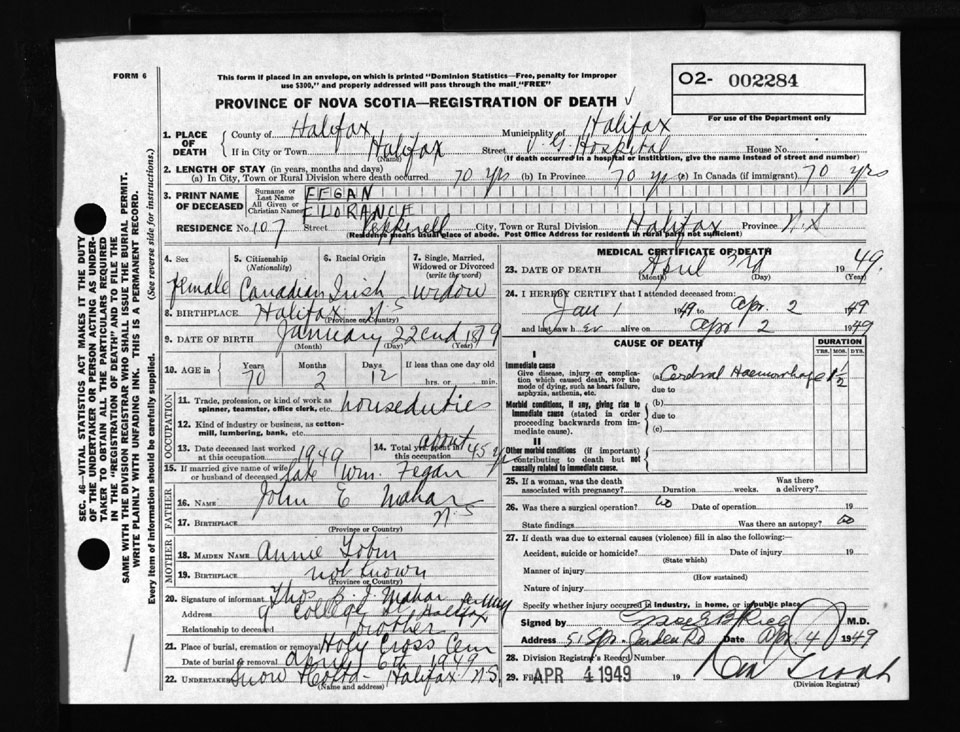 FORM 6
This form if placed in an envelope, on which is printed "Dominion Statistics—Free, penalty for improper
use $300," and properly addressed will pass through the mail "FREE"
O2- 002284
PROVINCE OF NOVA SCOTIA—REGISTRATION OF DEATH
For use of the Department only
1. PLACE OF DEATH
County of Halifax Municipality of Halifax
If in City or Town Halifax Street V. G. Hospital House No.
(Name) (If death occurred in a hospital or institution, give the name instead of street and number)
2. LENGTH OF STAY (in years, months and days)
(a) In City, Town or Rural Division where death occurred 70 yrs (b) In Province 70 yrs (c) In Canada (if immigrant) 70 yrs
3. PRINT NAME OF DECEASED
Surname or Last Name FEGAN
All Given or Christian Names FLORANCE
RESIDENCE No. 107 Street Pepperell City, Town or Rural Division Halifax Province N.S
(Residence means usual place of abode. Post Office Address for residents in rural parts not sufficient)
4. Sex
female
5. Citizenship
(Nationality)
Canadian
6. Racial Origin
Irish
7. Single, Married,
Widowed or Divorced
(write the word)
widow
8. BIRTHPLACE Halifax N.S
(Province or Country)
9. DATE OF BIRTH January 22nd 1879
(Month) (Day) (Year)
10. AGE in
Years 70
Months 2
Days 12
If less than one day old
hrs. or min.
OCCUPATION
11. Trade, profession, or kind of work as
spinner, teamster, office clerk, etc. houseduties
12. Kind of industry or business, as cotton-
mill, lumbering, bank, etc.
13. Date deceased last worked
at this occupation 1949
14. Total yrs. spent in
this occupation about 45 yr
15. If married give name of wife
or husband of deceased late Wm. Fegan
FATHER
16. NAME John E Mahar
17. BIRTHPLACE N.S
(Province or Country)
MOTHER
18. MAIDEN NAME Annie Tobin
19. BIRTHPLACE not known
(Province or Country)
20. Signature of informant Thos J Mahar
Address College St Halifax
Relationship to deceased brother
21. Place of burial, cremation or removal Holy Cross Cem
Date of burial or removal april 6th 1949
22. Undertaker Snow & Co Ltd - Halifax N.S.
(Name and address)
MEDICAL CERTIFICATE OF DEATH
23. DATE OF DEATH April 3rd 1949.
(Month) (Day) (Year)
24. I HEREBY CERTIFY that I attended deceased from:
Jan 1 1949 to Apr. 2 1949
and last saw h er alive on Apr 2 1949
CAUSE OF DEATH
DURATION
YRS. MOS. DYS.
I
Immediate cause
Give disease, injury or compli-
cation which caused death, NOT the
mode of dying, such as heart failure,
asphyxia, asthenia, etc.
(a) Cerebral Haemorrhage
due to
Morbid conditions, if any, giving rise to
immediate cause (stated in order
proceeding backwards from im-
mediate cause).
(b)
due to
(c)
II
Other morbid conditions (if important)
contributing to death but not
causally related to immediate cause.
25. If a woman, was the death
associated with pregnancy? Duration weeks. Was there
a delivery?
26. Was there a surgical operation? no Date of operation 19
State findings Was there an autopsy? no
27. If death was due to external causes (violence) fill in also the following:—
Accident, suicide or homicide? Date of injury 19
(State which)
Manner of injury
(How sustained)
Nature of injury
Specify whether injury occurred in industry, in home, or in public place
Signed by M.D.
Address 51 Spr. Garden Rd Date Apr. 4 1949
28. Division Registrar's Record Number
29. Filed APR 4 1949 19
(Division Registrar)
SEC. 46—VITAL STATISTICS ACT MAKES IT THE DUTY
OF THE UNDERTAKER OR PERSON ACTING AS UNDER-
TAKER TO OBTAIN ALL THE PARTICULARS REQUIRED
IN THE "REGISTRATION OF DEATH" AND TO FILE THE
SAME WITH THE DIVISION REGISTRAR WHO SHALL ISSUE THE BURIAL PERMIT.
WRITE PLAINLY WITH UNFADING INK. THIS IS A PERMANENT RECORD.
Every item of information should be carefully supplied. (See reverse side for instructions.)